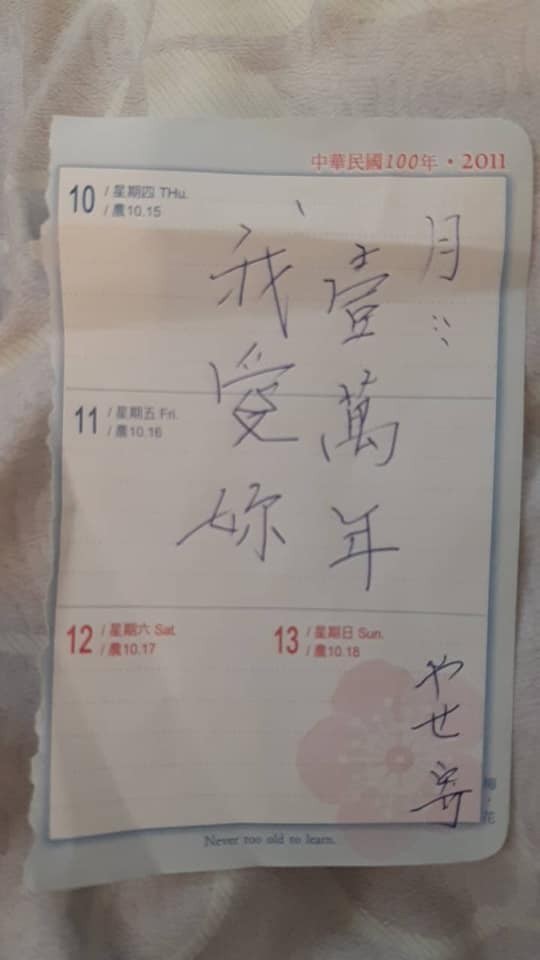 中華民國100年・2011
10 / 星期四 THu.
/ 農10.15
11 / 星期五 Fri.
/ 農10.16
12 / 星期六 Sat.
/ 農10.17
13 / 星期日 Sun.
/ 農10.18
月：
壹萬年
我愛妳
やせ寄
梅・花
Never too old to learn.